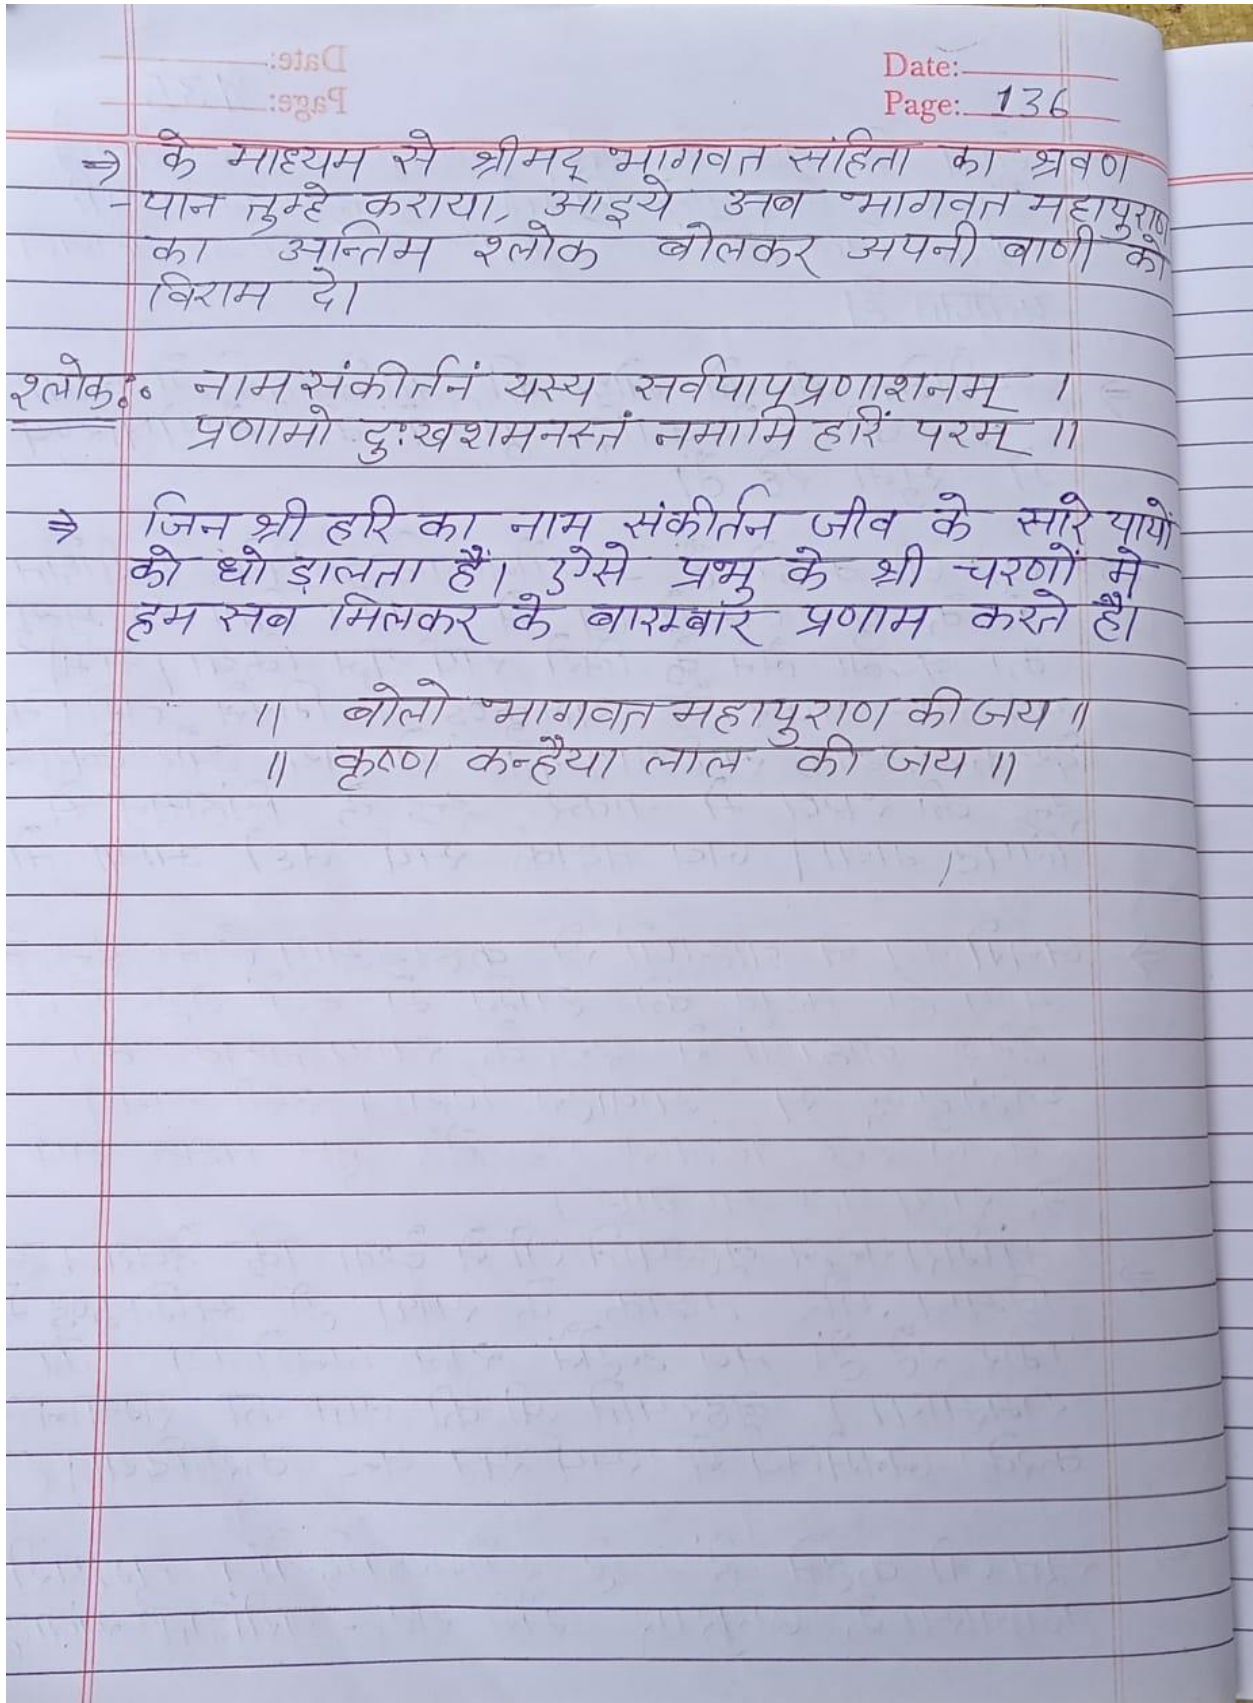 Date:
Page: 136
⇒ के माध्यम से श्रीमद् भागवत संहिता का श्रवण
-पान तुम्हे कराया, आइये अब भागवत महापुराण
का अन्तिम श्लोक बोलकर अपनी बाणी को
विराम दे।
श्लोक:. नामसंकीर्तनं यस्य सर्वपापप्रणाशनम् ।
प्रणामो दुःखशमनस्तं नमामि हरिं परम् ॥
⇒ जिन श्री हरि का नाम संकीर्तन जीव के सारे पापों
को धो ड़ालता हैं। ऐसे प्रभु के श्री चरणों मे
हम सब मिलकर के बारम्बार प्रणाम करते है।
॥ बोलो भागवत महापुराण की जय ॥
॥ कृष्ण कन्हैया लाल की जय ॥